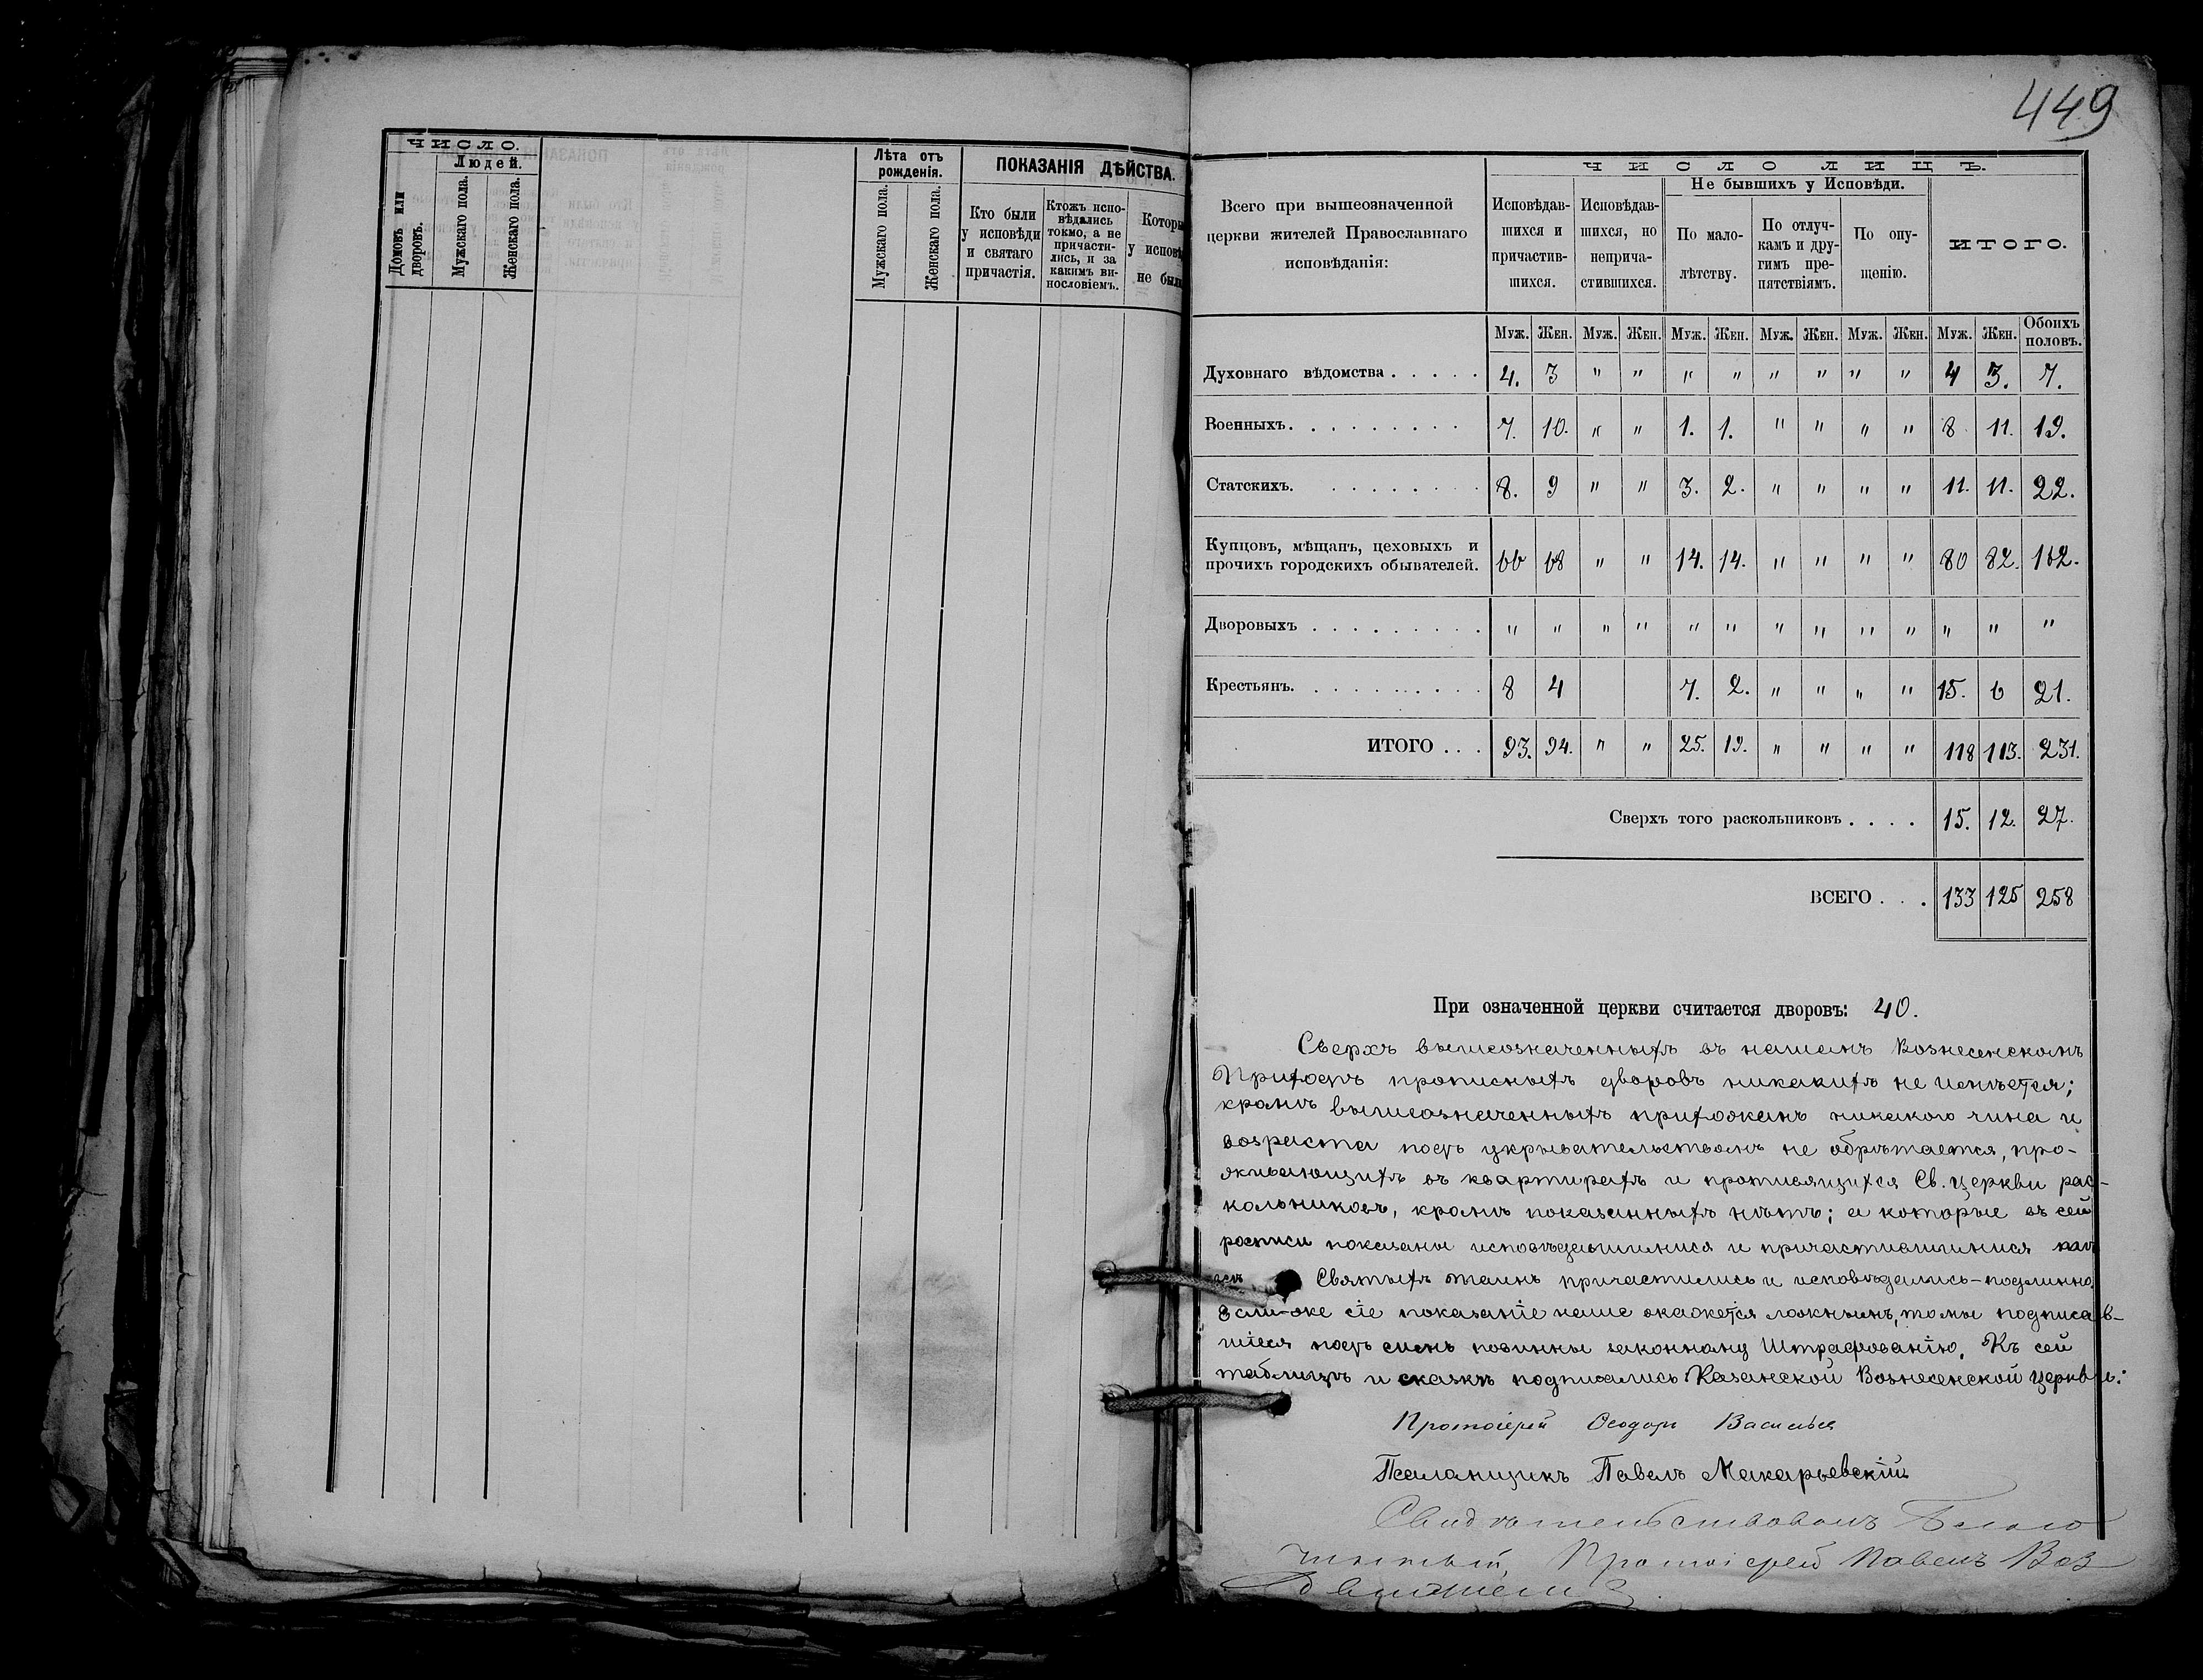 ЧИСЛО.
Людей.
Домовъ или дворовъ.
Мужскаго пола.
Женскаго пола.
Лѣта отъ
рожденія.
Мужскаго пола.
Женскаго пола.
ПОКАЗАНІЯ ДѢЙСТВА.
Кто были
у исповѣди
и святаго
причастія.
Ктожъ испо-
вѣдались
токмо, а не
причасти-
лись, и за
какимъ ви-
нословіемъ.
Котор
у исповѣ
не был
449
Всего при вышеозначенной
церкви жителей Православнаго
исповѣданія:
ЧИСЛО ЛИЦЪ.
Исповѣдав-
шихся и
причастив-
шихся.
Исповѣдав-
шихся, но
неприча-
стившихся.
Не бывшихъ у Исповѣди.
По мало-
лѣтству.
По отлуч-
камъ и дру-
гимъ пре-
пятствіямъ.
По опу-
щенію.
ИТОГО.
Муж. Жен. Муж. Жен. Муж. Жен. Муж. Жен. Муж. Жен. Муж. Жен. Обоихъ половъ.
Духовнаго вѣдомства . . . . . 4. 3 " " " " " " " " 4 3. 7.
Военныхъ. . . . . . . . . 7. 10. " " 1. 1. " " " " 8. 11. 19.
Статскихъ. . . . . . . . . 8. 9 " " 3. 2. " " " " 11. 11. 22.
Купцовъ, мѣщанъ, цеховыхъ и
прочихъ городскихъ обывателей. 66 68 " " 14. 14. " " " " 80 82. 162.
Дворовыхъ . . . . . . . . . " " " " " " " " " " " " "
Крестьянъ. . . . . . . . . . 8 4 7. 2. " " " " 15. 6 21.
ИТОГО . . . 93. 94. " " 25. 19. " " " " 118 113. 231.
Сверхъ того раскольниковъ . . . . 15. 12. 27.
ВСЕГО . . . 133 125 258
При означенной церкви считается дворовъ: 40.
Сверхъ вышеозначенныхъ въ нашемъ Вознесенскомъ
Приходѣ прописныхъ дворовъ никакихъ не имѣется;
кромѣ вышеозначенныхъ прихожанъ никакого чина и
возраста подъ укрывательствомъ не обрѣтается, про-
живающихъ въ квартирахъ и противящихся Св. Церкви рас-
кольниковъ, кромѣ показанныхъ нѣтъ; а которые въ сей
росписи показаны исповѣдавшимися и причастившимися
Святыхъ таинъ причастились и исповѣдались – подлинно.
Если-же сіе показаніе наше окажется ложнымъ, то мы подписав-
шіеся подъ симъ повинны законному Штрафованію. Къ сей
таблицѣ и сказкѣ подписались Казанской Вознесенской церкви:
Протоіерей Ѳеодоръ Васильев
Псаломщикъ Павелъ Макарьевскій
Свидѣтельствовалъ Благо
чинный, Протоіерей Павелъ Воз